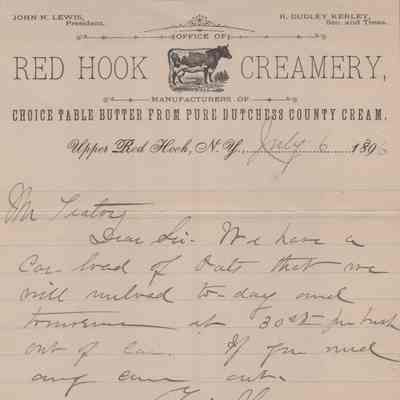 JOHN N. LEWIS,
President.
H. DUDLEY KERLEY,
Sec. and Treas.
OFFICE OF
RED HOOK CREAMERY,
MANUFACTURERS OF
CHOICE TABLE BUTTER FROM PURE DUTCHESS COUNTY CREAM.
Upper Red Hook, N. Y., July 6 1896
Mr
Dear Sir. We have a
Car load of Oats that we
will unload to-day and
tomorrow at 30 cts per bush
out of car. If you need
any come